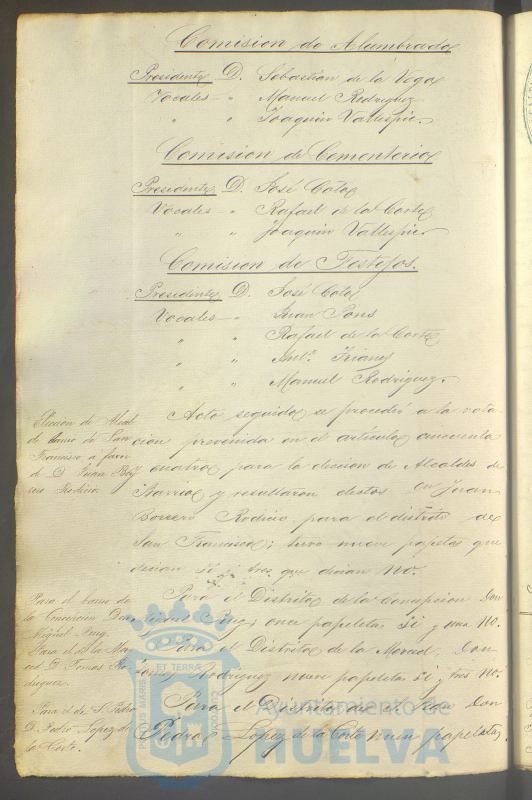 Comision de Alumbrado
Presidente D. Sebastian de la Vega
Vocales " Manuel Rodriguez
" " Joaquin Vallespin.
Comision de Cementerio
Presidente D. José Cota
Vocales " Rafael de la Corte
" " Joaquin Vallespin
Comision de Festejos.
Presidente D. José Cota
Vocales " Juan Pons
" " Rafael de la Corte
" " Ant.º
" " Manuel Rodriguez.
Acto seguido se procedió a la vota-
cion prevenida en el articulo cincuenta
cuatro para la eleccion de Alcaldes de
Barrio y resultaron electos Juan
Borrero Rodicio para el distrito de
San Francisco; tuvo nueve papeletas que
decian Sí y tres que decian no.
Para el Distrito de la Concepcion Don
Miguel Puig; once papeletas Si y una no.
Para el Distrito de la Merced, Don
Tomas Rodriguez nueve papeletas si y tres no.
Para el Distrito de San Don
Pedro Lopez de la Corte nueve papeletas
Eleccion de Alcal-
de barrio de San
Francisco a favor
de D. Juan Bor-
rero Rodicio
Para el barrio de
la Concepcion Don
Miguel Puig.
Para el de la Mer-
ced D. Tomas Ro-
driguez.
Para el de S. Pedro
D. Pedro Lopez de
la Corte.
PORTUS MARIS ET TERRAE CUSTODIA
Ayuntamiento de
HUELVA